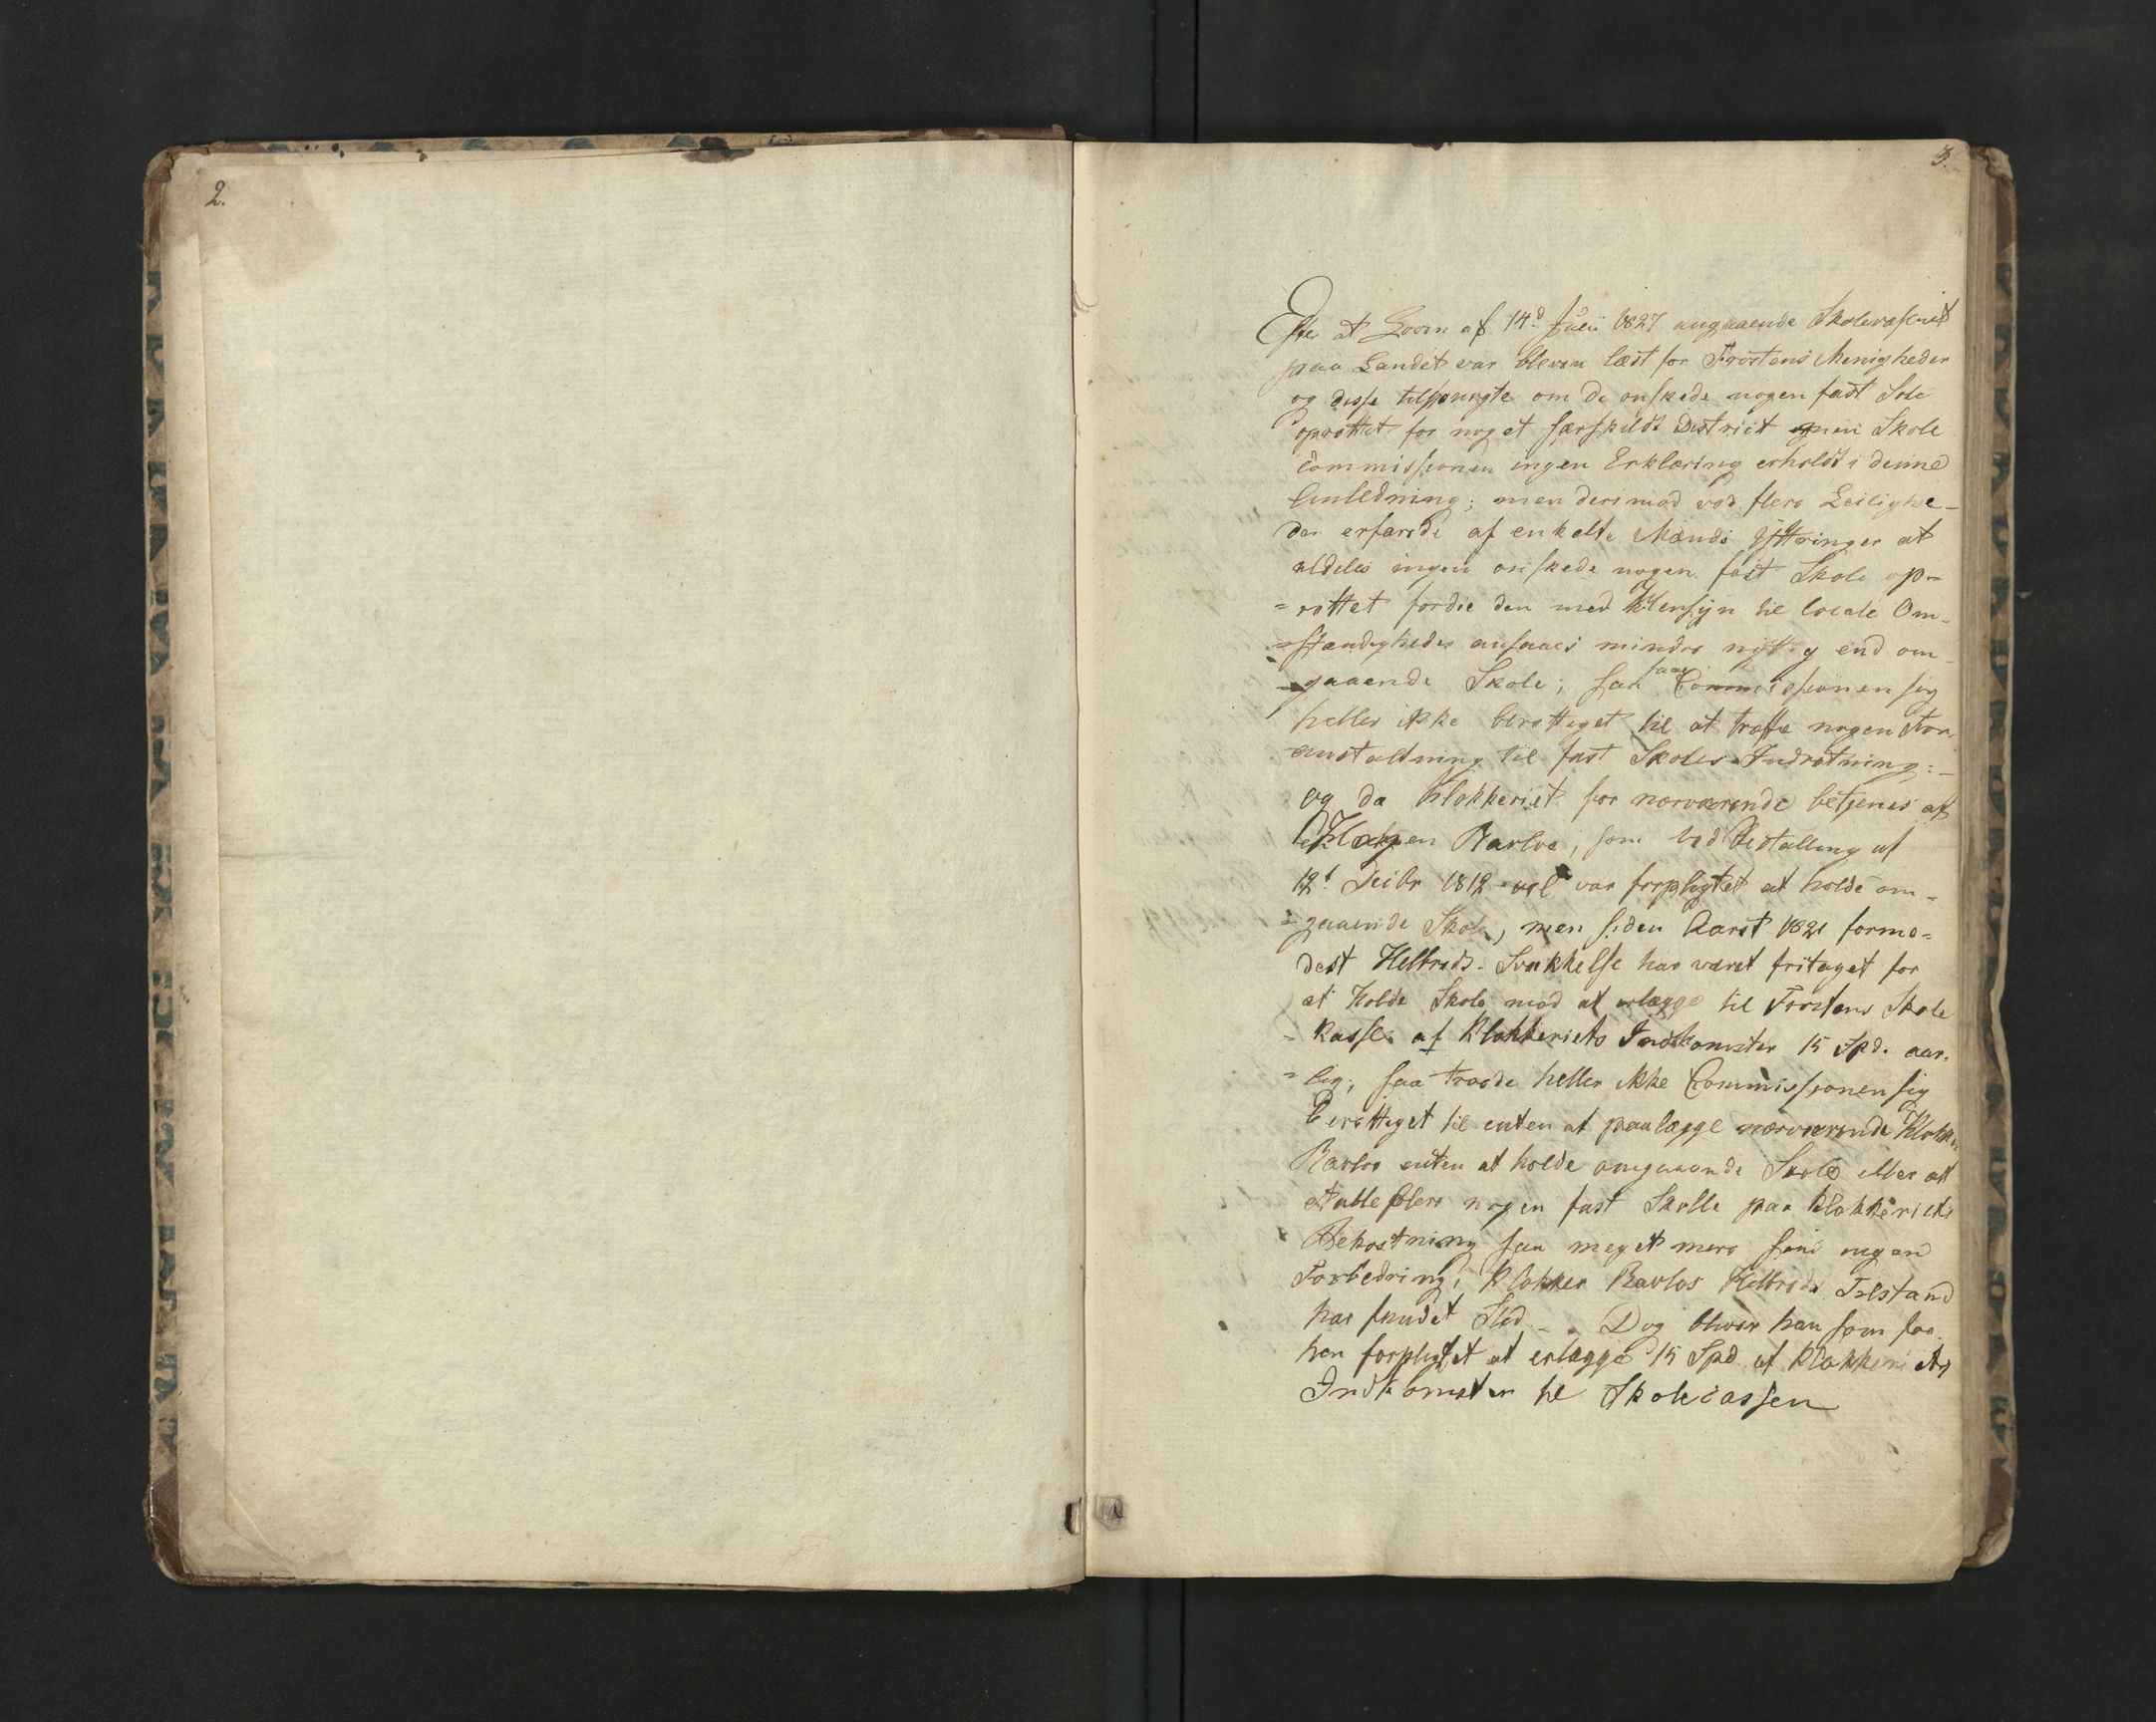 2.
3.
Efter at Loven af 14d Julii 1827 angaaende Skolevæsenet
paa Landet var bleven læst for Frostens Menigheder
og disse tilspurgte om de ønskede nogen fast Sole
oprættet for noget særskildt District men Skole
Commissionen ingen Erklæring erholdt i denne
Anledning; men derimod ved flere Leilighe-
der erfarede af enkelte Mænds Yttringer at
aldeles ingen ønskede nogen fast Skole op-
=rættet fordie den med Hensyn til locale Om-
=stændigheder ansaaes mindre nyttig end om-
=gaaende Skole; saa saae Commissionen sig
heller ikke berættiget til at træffe nogen For-
anstaltning til fast Skoles Indrætning:-
og da Klokkeriet for nærværende betjenes af
Barloe, som ved Bestalling af
12t Decbr 1812 vel var forpligtet at holde om-
=gaaende Skole, men siden Aaret 1821 forme=
dest Helbreds-Svækkelse har været fritaget for
at holde Skole mod at erlægge til Frostens Skole
-kasse af Klokkeriets Indkomster 15 Spd. aar-
=lig; saa troede heller ikke Commissionen sig
berættiget til enten at paalægge nærværende Klokker
Barloe enten at holde omgaaende Skole eller at
etablessere nogen fast Skolle paa Klokkeriets
Bekostning saa meget mere som ingen
Forbedring i Klokker Barloes Helbreds Tilstand
har fundet Sted -. Dog bliver han som for
hen forpligtet at erlægge 15 Spd af Klokkeriets
Indkomster til Skolecassen